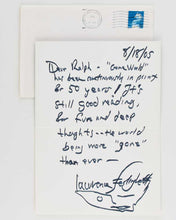 8/18/05
Dear Ralph - "Gone World"
has been continuously in print
for 50 years! It's
still good reading,
for fun and deep
thoughts - the world
being more "gone"
than ever —
Lawrence Ferlinghetti